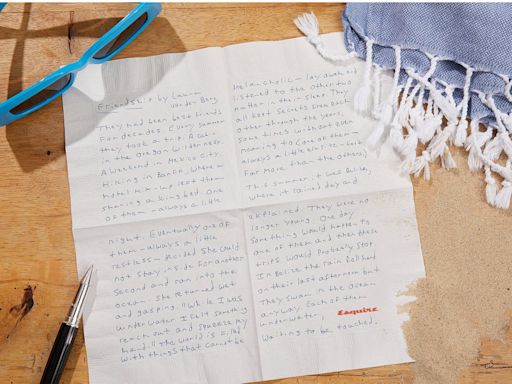 Friendship by Laura
van den Berg
They had been best friends
For decades. Every summer
they took a trip. A cabin
in the Oregon wilderness.
A weekend in Mexico City.
Hiking in Banff, where a
hotel mix-up left them
sharing a king bed. One
of them—always a little
melancholic—lay awake and
listened to the other two
in their sleep. They
all kept secrets from each
other through the years,
sometimes without even
meaning to (one of them—
always a little —kept
far more than the others)
This summer it was Belize,
where it rained day and
night. Eventually one of
them—always a little
restless—decided she could
not stay inside for another
second and ran into the
ocean. She returned wet
and gasping. "While I was
underwater I felt something
reach out and squeeze my
hand." The world is filled
with things that cannot be
explained. They were no
longer young. One day
something would happen to
one of them and then these
trips would probably stop.
In Belize the rain held
on their last afternoon but
they swam in the ocean
anyway. Each of them
underwater,
Esquire
waiting to be touched.